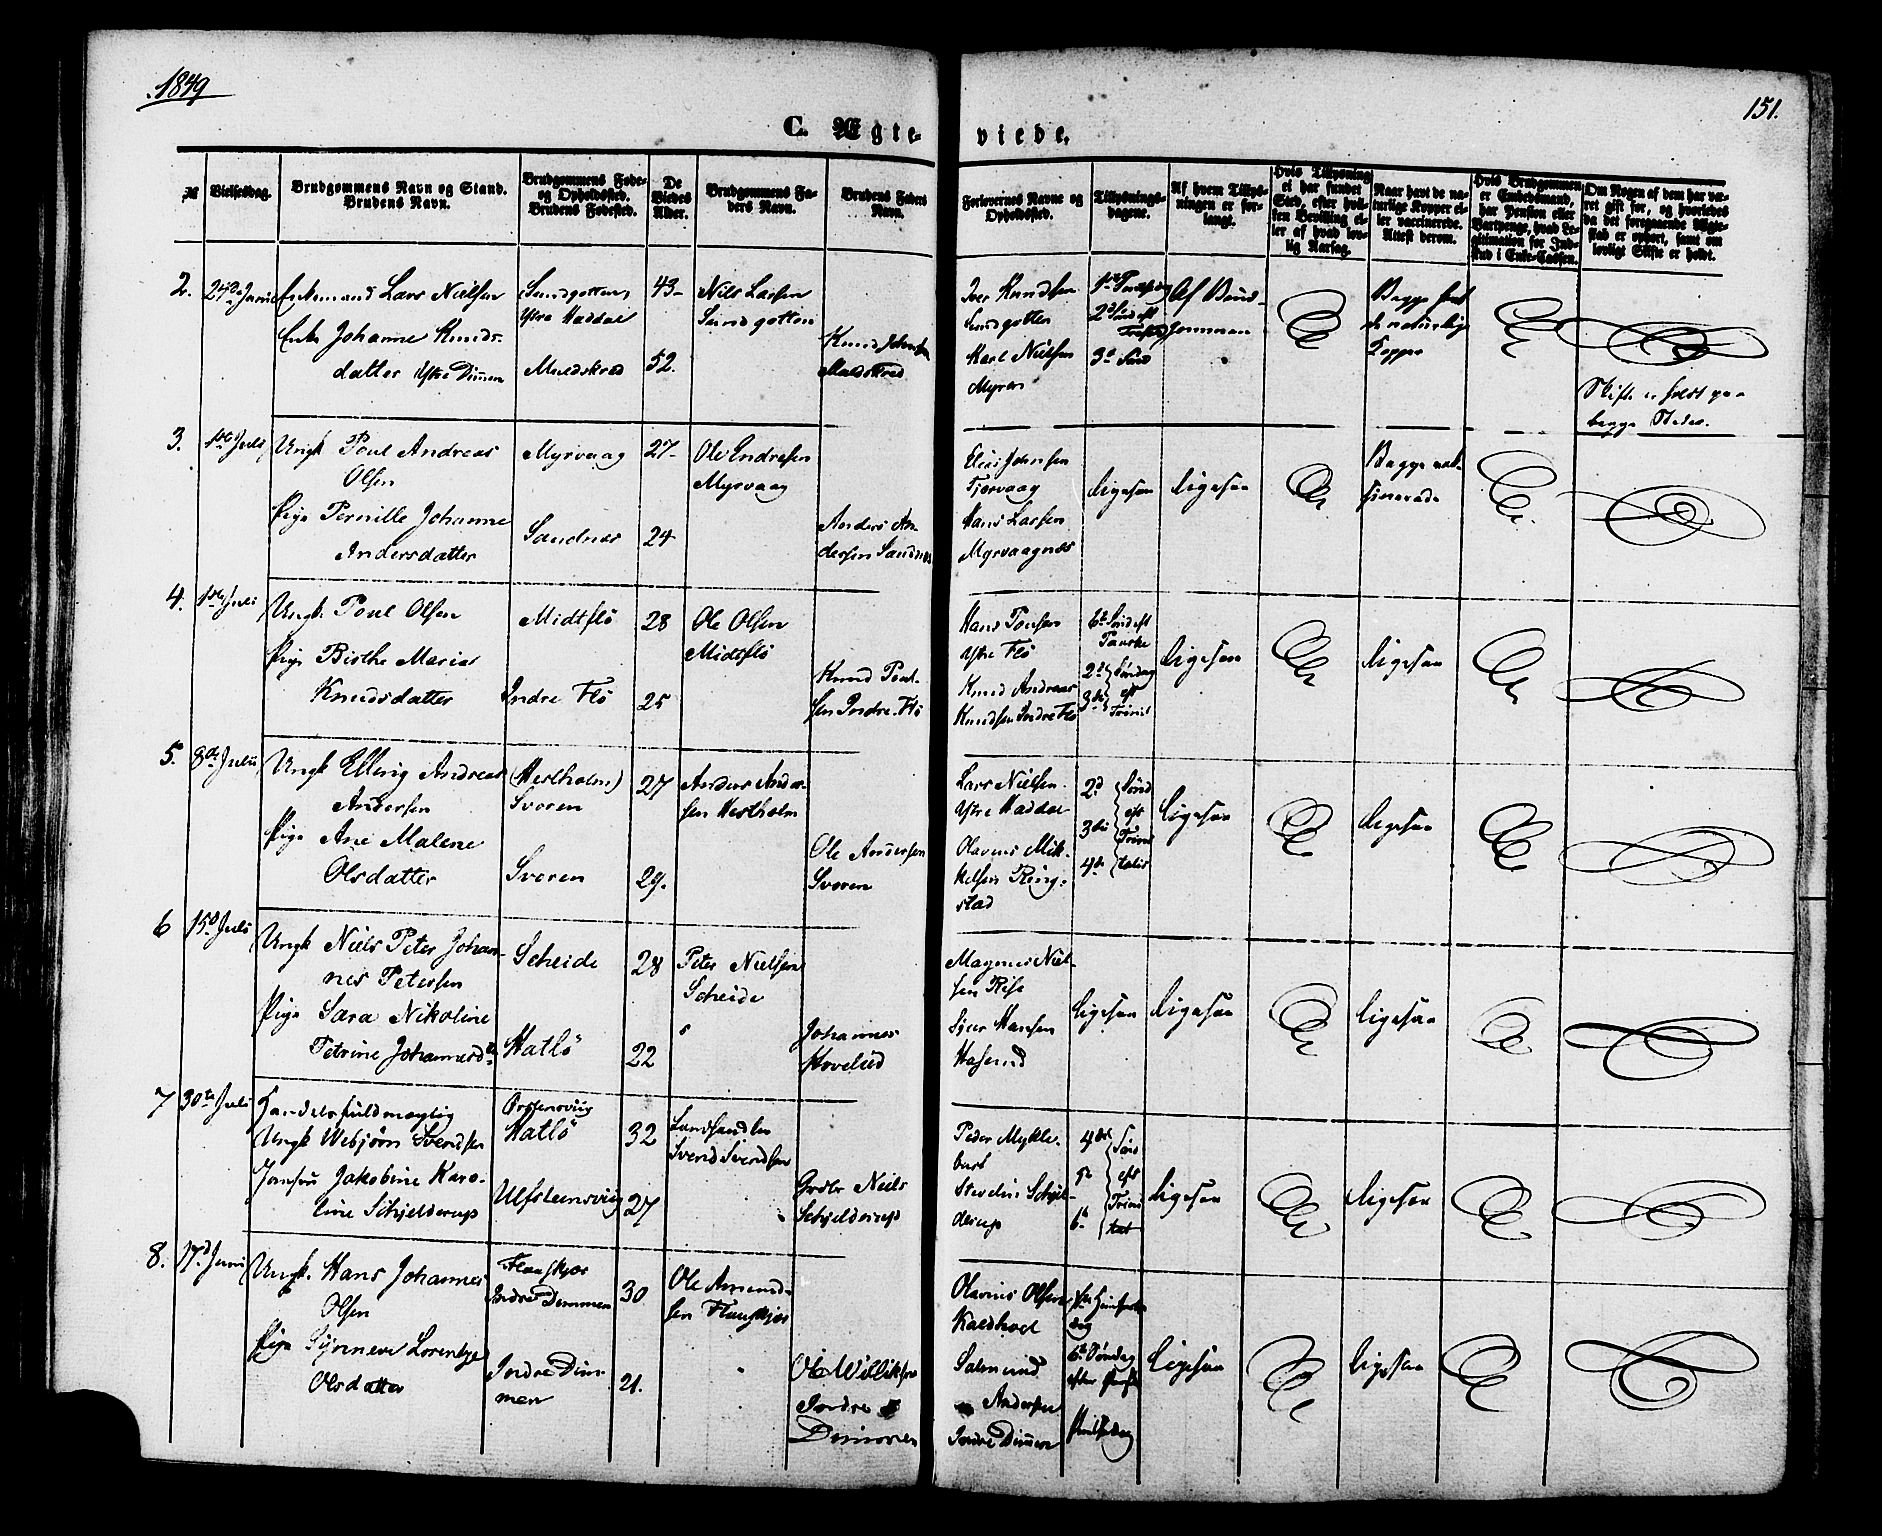 1849
151.
C. Ægte- viede.
№
Vielsesdag.
Brudgommens Navn og Stand.
Brudens Navn.
Brudgommens Føde-
og Opholdssted.
Brudens Fødested.
De
Viedes
Alder.
Brudgommens Fa-
ders Navn.
Brudens Faders
Navn.
Forlovernes Navne og
Opholdssted.
Tillysnings-
dagene.
Af hvem Tillys-
ningen er for-
langt.
Hvis Tillysning
ei har fundet
Sted, efter hvil-
ken Bevilling el-
ler af hvad lov-
lig Aarsag.
Naar havt de na-
turlige Kopper el-
ler vaccinerede.
Attest derom.
Hvis Brudgommen
er Embedsmand,
har Pension eller
Vartpenge, hvad Le-
gitimation for Ind-
skud i Enke-Cassen.
Om Nogen af dem har væ-
ret gift før, og hvorledes
da det foregaaende Ægte-
skab er ophørt, samt om
lovlig Skifte er holdt.
2.
Enkemand Lars Nielsen
Enke Johanne Knuds-
datter Ytre Dimmen
Sundgotten
Ytre Haddal
Muldskred
43
52.
Nils Larsen
Sundgotten
Knud Johnsen
Muldskred
Iver Knudsen
Sundgotten
Karl Nielsen
Myren
3d Sønd
Af Brud-
gommen
Begge havt
de naturlige
Kopper
Skifte er holdt paa
begge Steder.
3.
1ste Juli
Ungk Poul Andreas
Olsen
Pige Pernille Johanne
Andersdatter
Myrvaag
Sandnes
27
24
Ole Endresen
Myrvaag
Anders An-
dersen Sandnes
Tjørvaag
Hans Larsen
Myrvaagnæs
ligesaa
ligesaa
Begge vak-
sinerede
4.
1ste Juli
Ungk. Poul Olsen
Pige Birthe Maria
Knudsdatter
Midtflö
Indre Flö
28
25
Ole Olsen
Midtflö
Knud Poul-
sen Indre Flö
Hans Tonsen
Ytre Flö
Knud Andreas
Knudsen Indre Flö
6te Sönd eft
Paaske
2d Søndag
3die eft
Trinit
ligesaa
ligesaa
5.
8de Juli
Ungk Elling Andreas
Andersen
Pige Ane Malene
Olsdatter
(Hestholm)
Svoren
Svoren
27
29.
Anders Ander-
sen Hestholm
Ole Andersen
Svoren
Lars Nielsen
Ytre Haddal
Olavus Mik-
kelsen Ring-
stad
2d Sønd
3die eft
4de Trini
tatis
ligesaa
ligesaa
6
15d Juli
Ungk Niels Peter Johan-
nes Petersen
Pige Sara Nikoline
Petrine Johannesdtr
Scheide
Hatlö
28
22
Peter Nielsen
Scheide
Johannes
Hovelsed
Magnus Niel-
sen Rise
Sjur Hansen
Hasund
ligesaa
ligesaa
ligesaa
7
30te Juli
Handelsfuldmægtig
Ungk Webjørn Svendsen
Jomfru Jakobine Karo-
line Schjelderup
Ørstensviig
Hatlö
Ulfsteensviig
32
27
Landhandler
Svend Svendsen
Niels
Schjelderup
Peder Mykle-
bust
Schjel-
derup
4de Sønd
5te eft
6te Trini
tat
ligesaa
ligesaa
8.
17d Juni
Ungk. Hans Johannes
Olsen
Pige Synneve Lorentze
Olsdatter
Flaaskjær
Indre Dimmen
Indre Dim-
men
30
21.
Ole Amund-
sen Flaaskjær
Ole Williksen
Indre
Dimmen
Olavus Olsen
Kaldhol
Salmund
Andersen
Indre Dimmen
Chr Himfarts
dag
6te Søndag
efter Paaske
Pintsedag
ligesaa
ligesaa